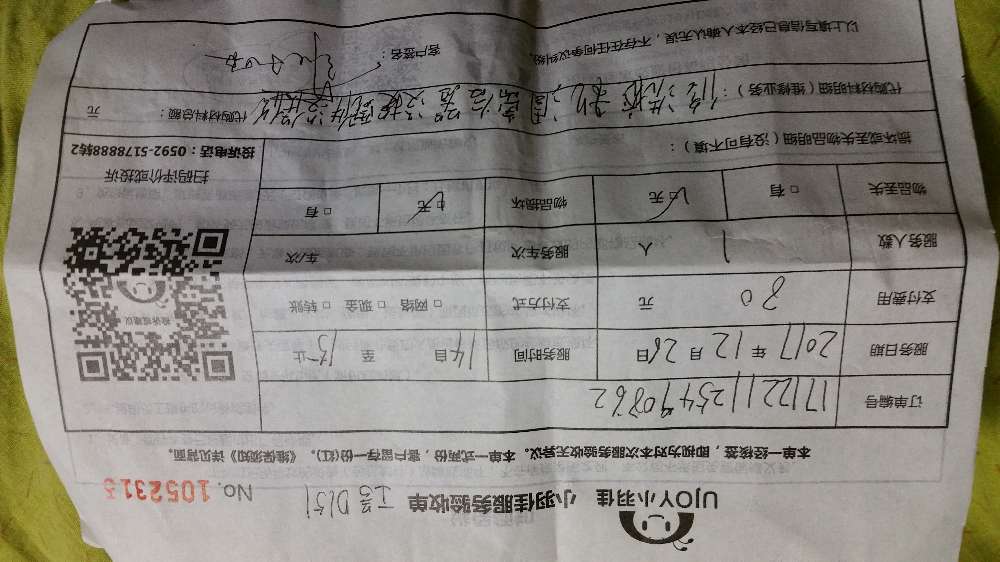 UJOY小羽佳 小羽佳服务验收单 工号D151 No. 1052315
本单一经核签，即视为对本次服务验收无异议。本单一式两份，客户留存一份(红)。《维保须知》详见背面。
订单编号 1712211254490862
服务日期 2017年12月26日 服务时间 14自 至 15止
支付费用 80元 支付方式 □网络 □现金 □转账
服务人数 1人 服务车次 车/次
物品丢失 □有 □无 物品损坏 □无 □有
损坏或丢失物品明细（没有可不填）：
代购材料明细（维修业务）： 代购材料总额： 元
以上填写信息已经本人确认无误，不存在任何争议纠纷。 客户签名：
投诉或建议
扫码评价或投诉
投诉电话：0592-5178888转2